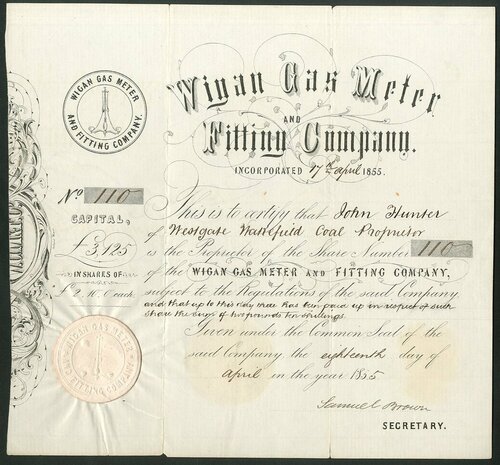 WIGAN GAS METER
AND FITTING COMPANY.
Wigan Gas Meter
AND
Fitting Company.
INCORPORATED 17th April 1855.
No 110
CAPITAL,
£3,125
IN SHARES OF
£2.10.0 each
This is to certify that John Hunter
of Westgate Wakefield Coal Proprietor
is the Proprietor of the Share Number 110
of the WIGAN GAS METER AND FITTING COMPANY,
subject to the Regulations of the said Company
and that up to this day there has been paid up in respect of such
share the sum of two pounds ten shillings
Given under the Common Seal of the
said Company the eighteenth day of
April in the year 1855
Samuel Brown
SECRETARY.
WIGAN GAS METER
AND FITTING COMPANY